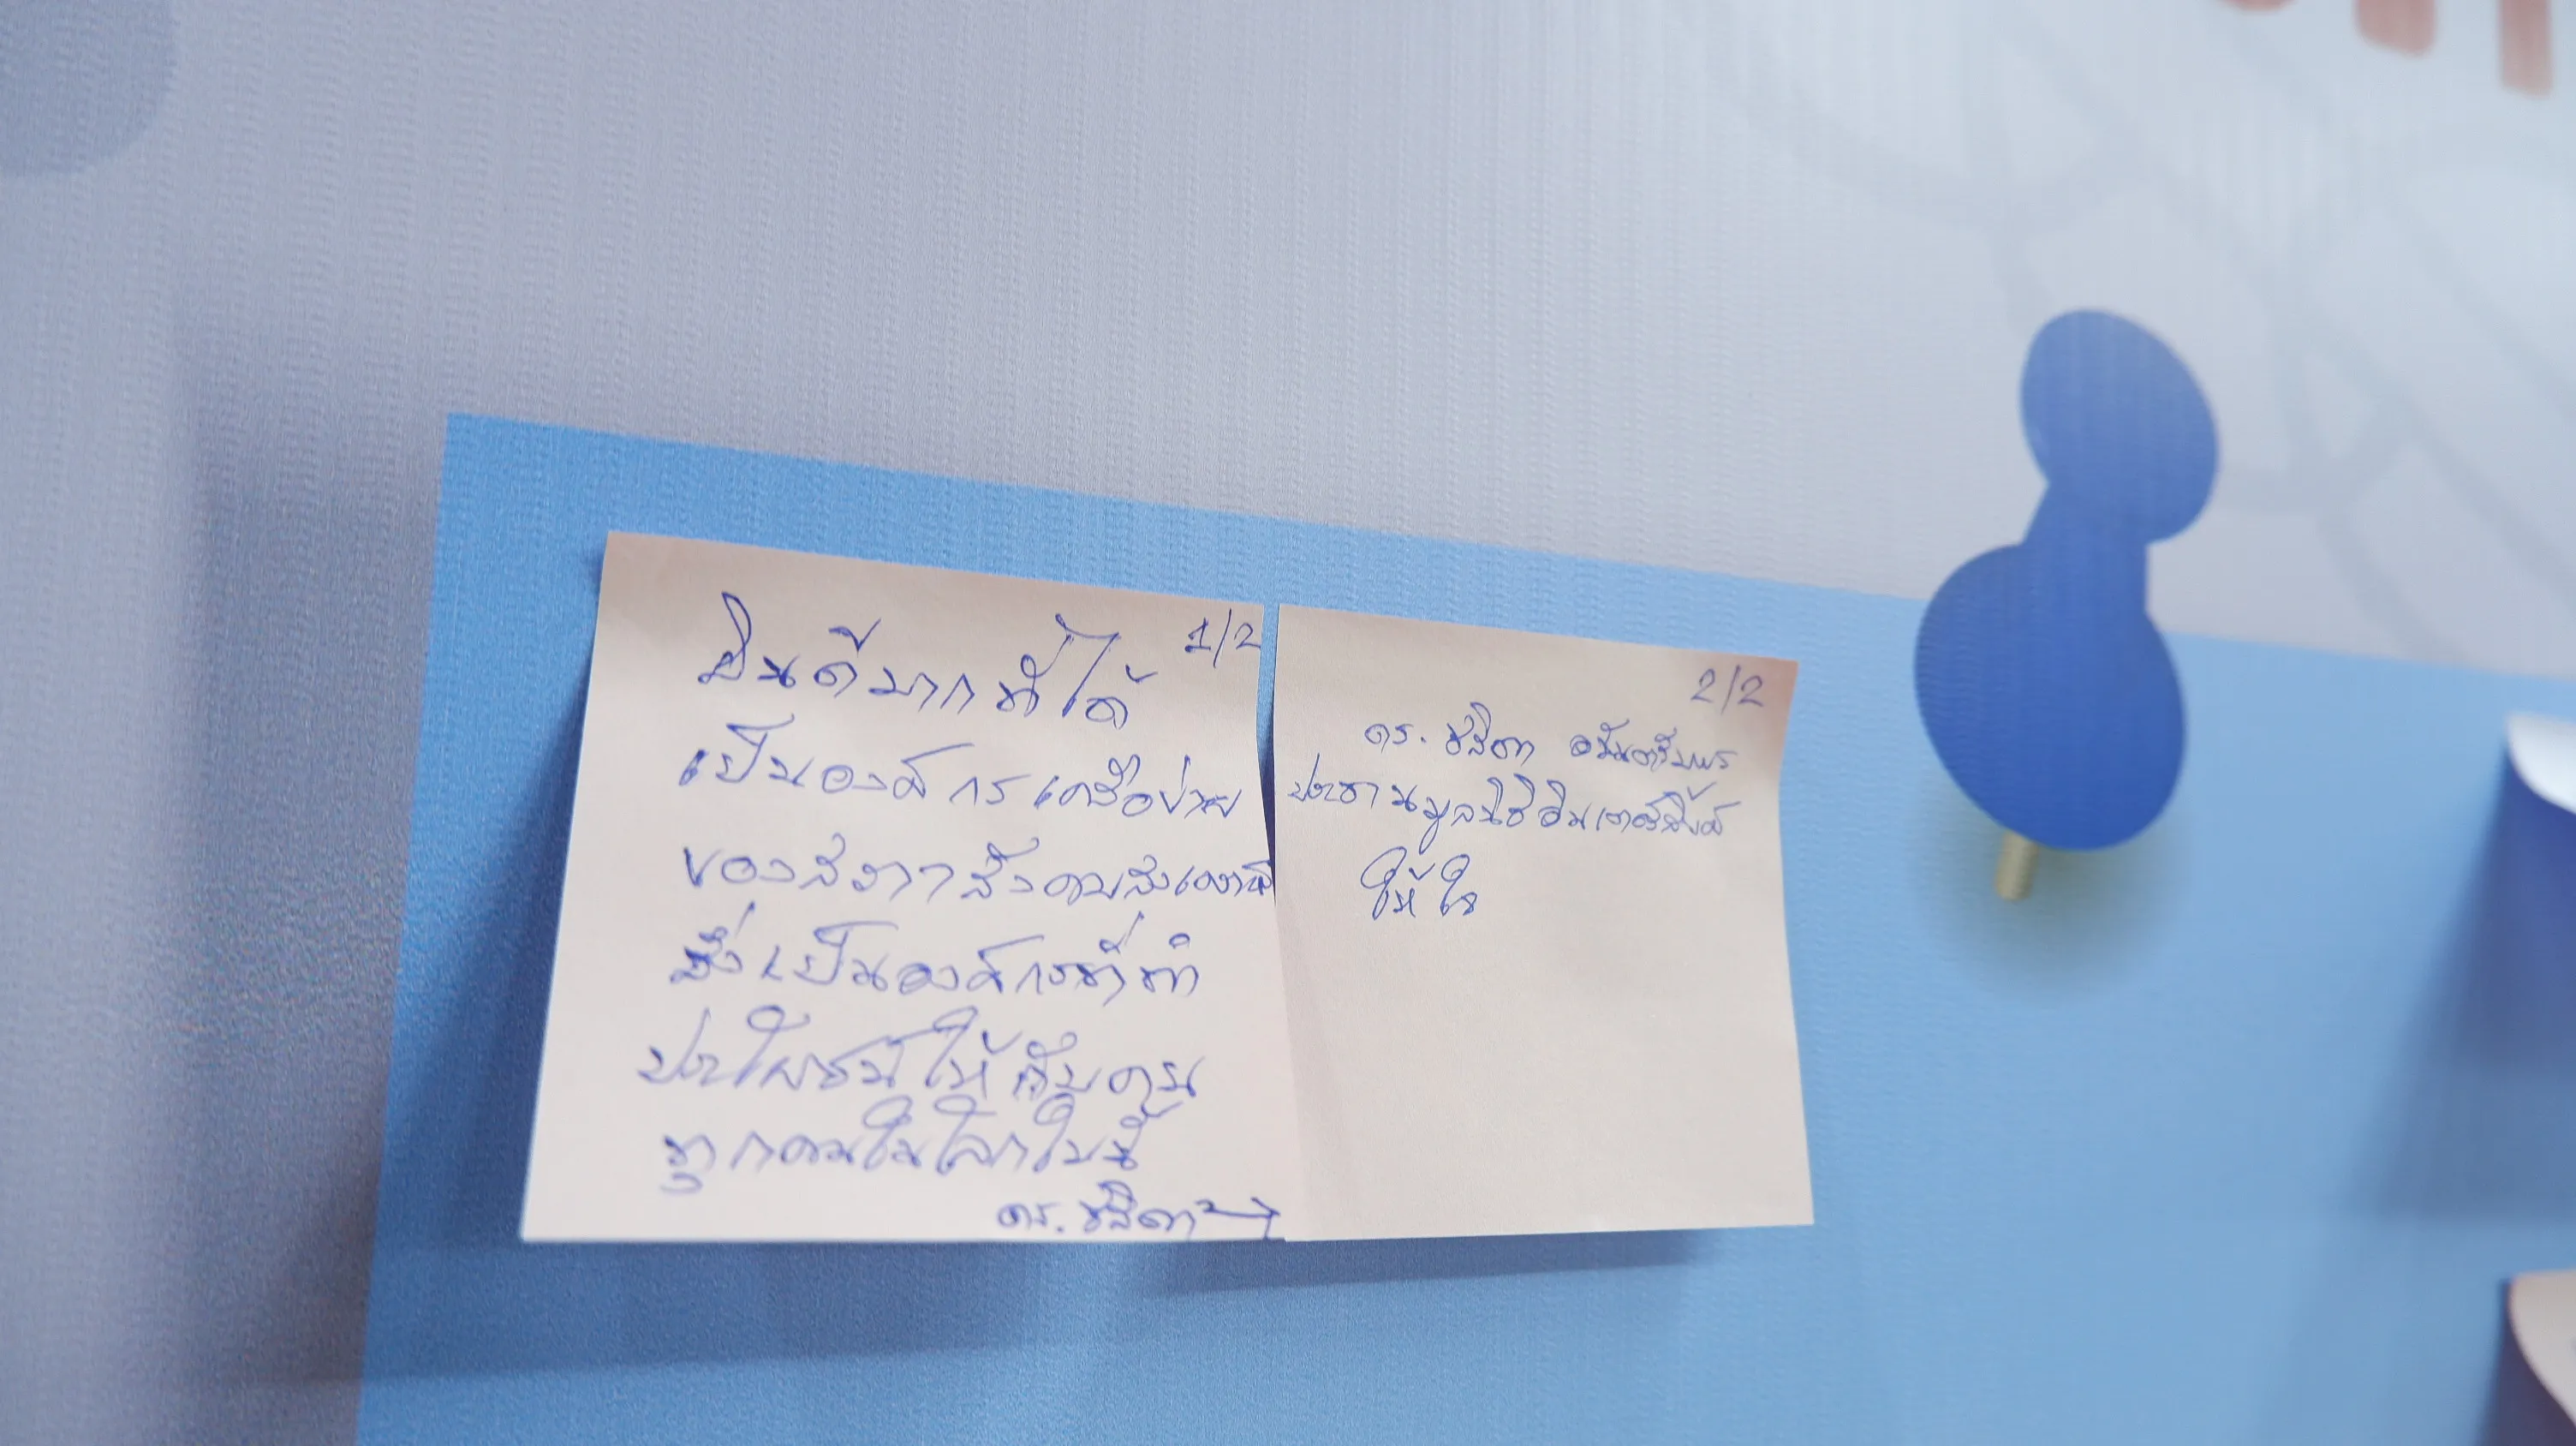 1/2
ยินดีมากที่ได้
เป็นองค์กรเครือข่าย
ของสภาสังคมสงเคราะห์
ซึ่งเป็นองค์กรที่ทำ
ประโยชน์ให้กับคน
ทุกคนในโลกใบนี้
ดร. ชลิดา
2/2
ดร. ชลิดา อนันตรัมพร
ประธานมูลนิธิอินเตอร์ลิ้งค์
ให้ใจ